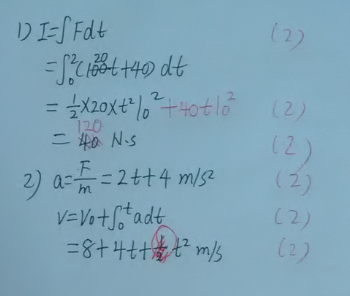 1) I=∫Fdt (2)
=∫₀²(20t+40)dt
=½×20×t²|₀²+40t|₀² (2)
=120 N·s (2)
2) a=F/m=2t+4 m/s² (2)
V=V₀+∫₀ᵗadt (2)
=8+4t+t² m/s (2)